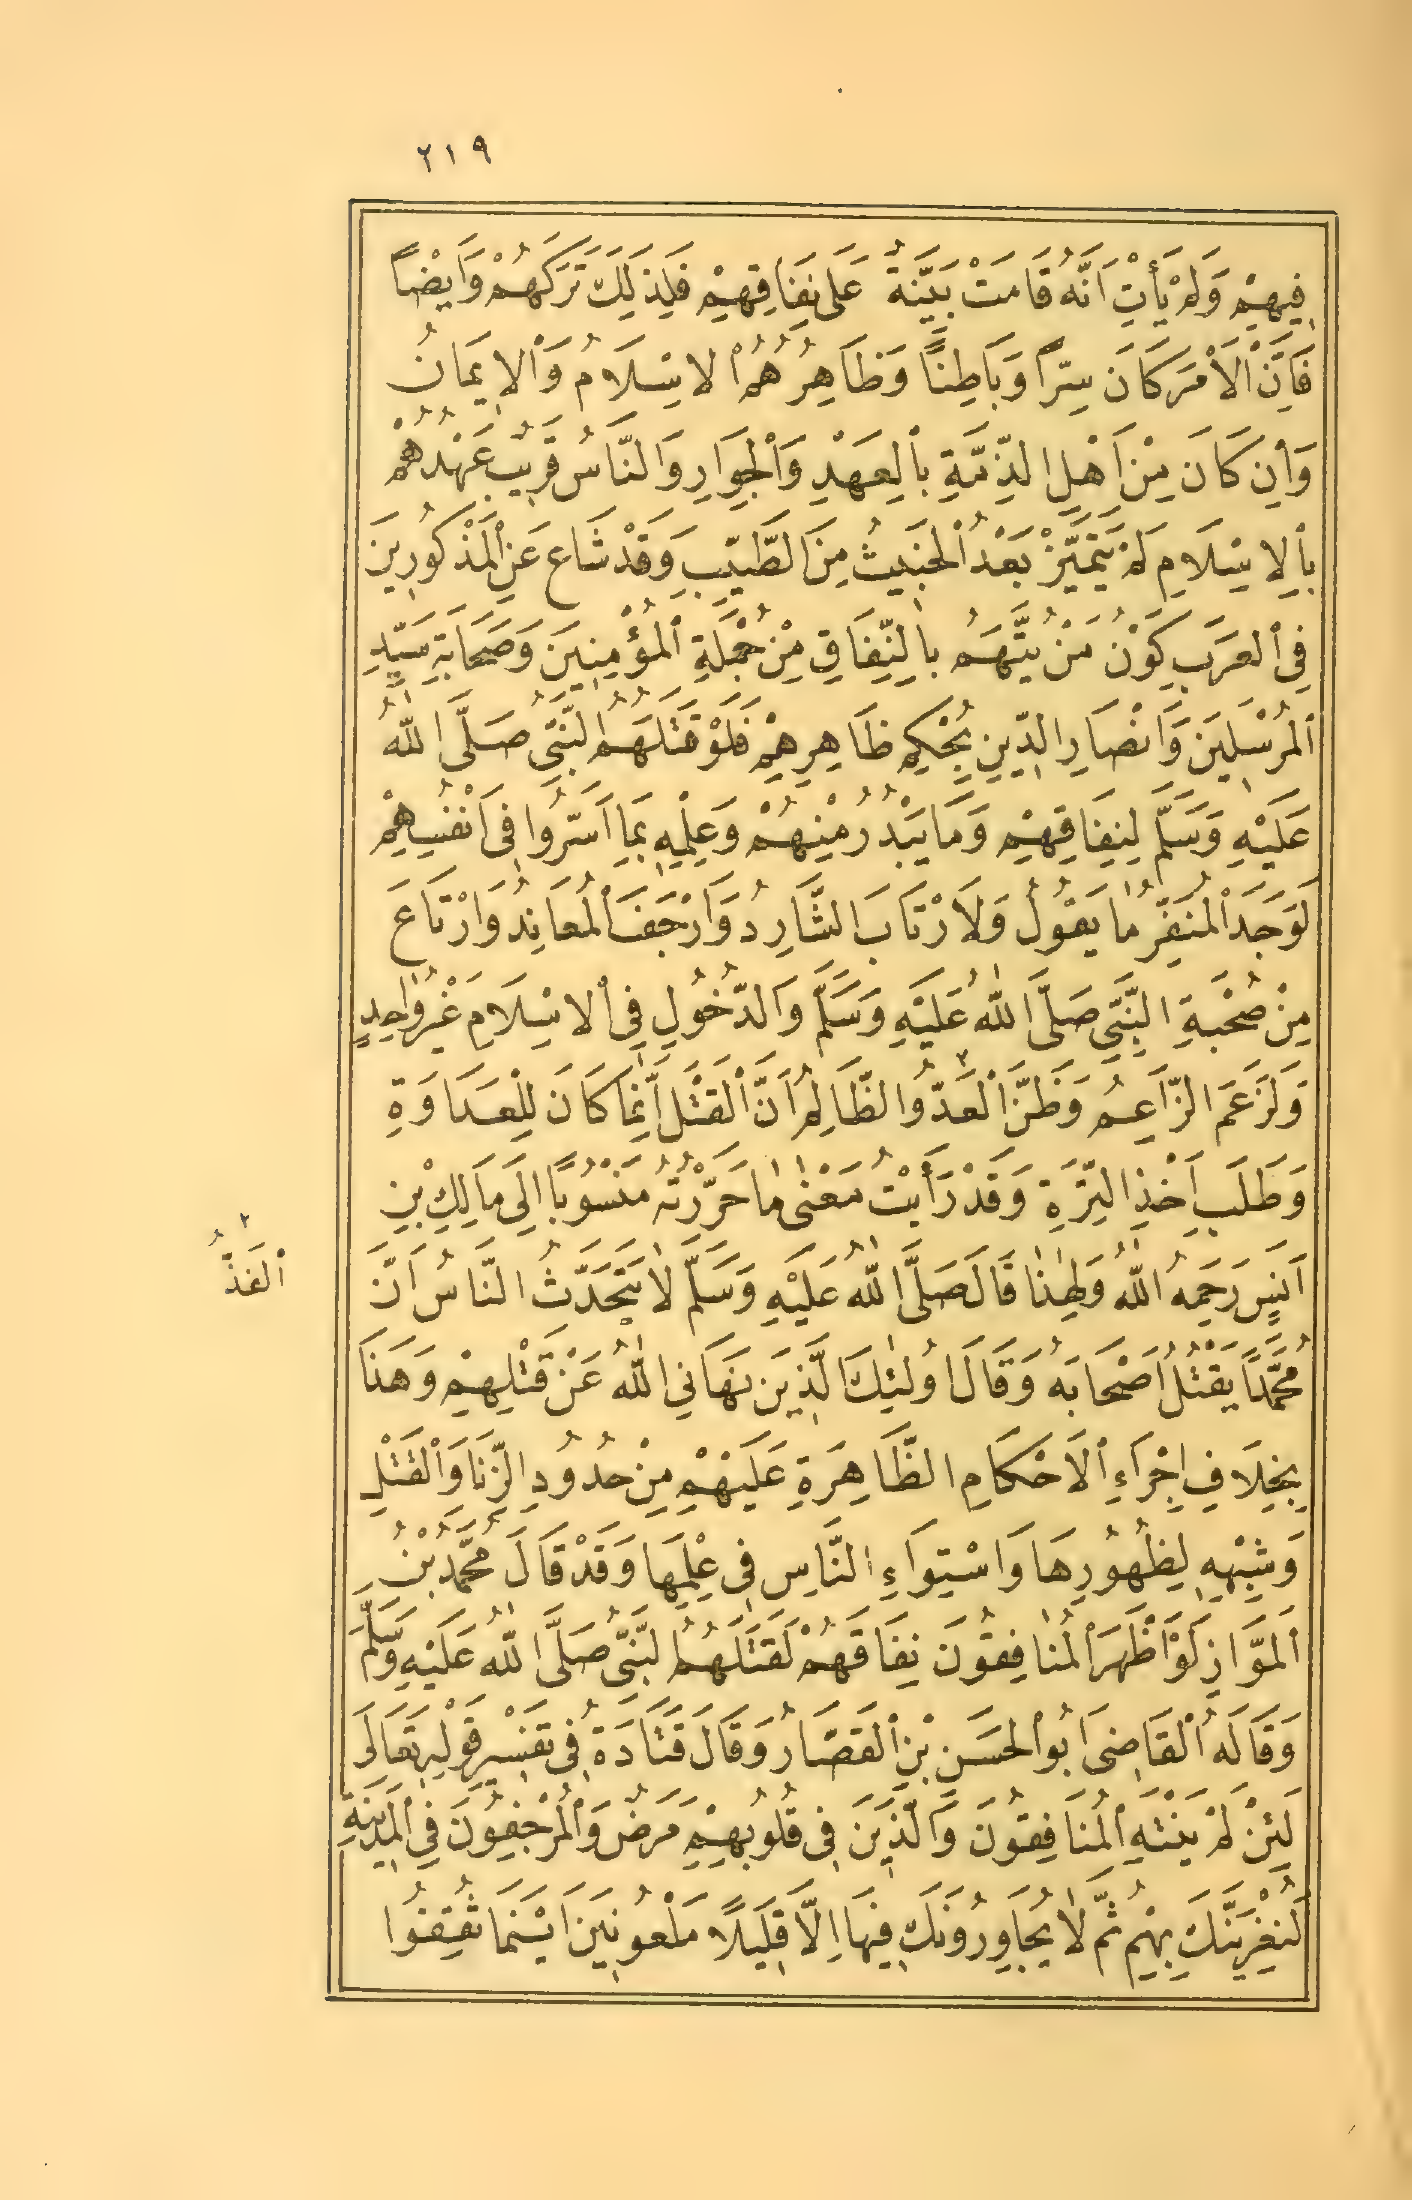 ٢١٩
فِيهِمْ وَلَمْ يَأْتِ اَنَّهُ قَامَتْ بَيِّنَةٌ عَلَى نِفَاقِهِمْ فَلِذَلِكَ تَرَكَهُمْ وَاَيْضًا
فَاِنَّ الْاَمْرَ كَانَ سِرًّا وَبَاطِنًا وَظَاهِرُهُمُ الْاِسْلَامُ وَالْاِيمَانُ
وَاِنْ كَانَ مِنْ اَهْلِ الذِّمَّةِ بِالْعَهْدِ وَالْجِوَارِ وَالنَّاسُ قَرِيبٌ عَهْدُهُمْ
بِالْاِسْلَامِ لَمْ يَتَمَيَّزْ بَعْدُ الْخَبِيثُ مِنَ الطَّيِّبِ وَقَدْ شَاعَ عَنِ الْمَذْكُورِينَ
فِى الْعَرَبِ كَوْنُ مَنْ يُتَّهَمُ بِالنِّفَاقِ مِنْ جُمْلَةِ الْمُؤْمِنِينَ وَصَحَابَةِ سَيِّدِ
الْمُرْسَلِينَ وَاَنْصَارِ الدِّينِ بِحُكْمِ ظَاهِرِهِمْ فَلَوْ قَتَلَهُمُ النَّبِىُّ صَلَّى اللّٰهُ
عَلَيْهِ وَسَلَّمَ لِنِفَاقِهِمْ وَمَا يَبْدُرُ مِنْهُمْ وَعِلْمِهِ بِمَا اَسَرُّوا فِى اَنْفُسِهِمْ
لَوَجَدَ الْمُنَفِّرُ مَا يَقُولُ وَلَارْتَابَ الشَّارِدُ وَاَرْجَفَ الْمُعَانِدُ وَارْتَاعَ
مِنْ صُحْبَةِ النَّبِىِّ صَلَّى اللّٰهُ عَلَيْهِ وَسَلَّمَ وَالدُّخُولِ فِى الْاِسْلَامِ غَيْرُ وَاحِدٍ
وَلَزَعَمَ الزَّاعِمُ وَظَنَّ الْعَدُوُّ الظَّالِمُ اَنَّ الْقَتْلَ اِنَّمَا كَانَ لِلْعَدَاوَةِ
وَطَلَبِ اَخْذِ التِّرَةِ وَقَدْ رَأَيْتُ مَعْنٰى مَا حَرَّرْتُهُ مَنْسُوبًا اِلَى مَالِكِ بْنِ
اَنَسٍ رَحِمَهُ اللّٰهُ وَلِهٰذَا قَالَ صَلَّى اللّٰهُ عَلَيْهِ وَسَلَّمَ لَا يَتَحَدَّثُ النَّاسُ اَنَّ
مُحَمَّدًا يَقْتُلُ اَصْحَابَهُ وَقَالَ اُولٰئِكَ الَّذِينَ نَهَانِى اللّٰهُ عَنْ قَتْلِهِمْ وَهَذَا
بِخِلَافِ اِجْرَاءِ الْاَحْكَامِ الظَّاهِرَةِ عَلَيْهِمْ مِنْ حُدُودِ الزِّنَا وَالْقَتْلِ
وَشِبْهِهِ لِظُهُورِهَا وَاسْتِوَاءِ النَّاسِ فِى عِلْمِهَا وَقَدْ قَالَ مُحَمَّدُ بْنُ
الْمَوَّازِ لَوْ اَظْهَرَ الْمُنَافِقُونَ نِفَاقَهُمْ لَقَتَلَهُمُ النَّبِىُّ صَلَّى اللّٰهُ عَلَيْهِ وَسَلَّمَ
وَقَالَهُ الْقَاضِى اَبُو الْحَسَنِ بْنُ الْقَصَّارُ وَقَالَ قَتَادَةُ فِى تَفْسِيرِ قَوْلِهِ تَعَالَى
لَئِنْ لَمْ يَنْتَهِ الْمُنَافِقُونَ وَالَّذِينَ فِى قُلُوبِهِمْ مَرَضٌ وَالْمُرْجِفُونَ فِى الْمَدِينَةِ
لَنُغْرِيَنَّكَ بِهِمْ ثُمَّ لَا يُجَاوِرُونَكَ فِيهَا اِلَّا قَلِيلًا مَلْعُونِينَ اَيْنَمَا ثُقِفُوا
٢
الْفَذُّ